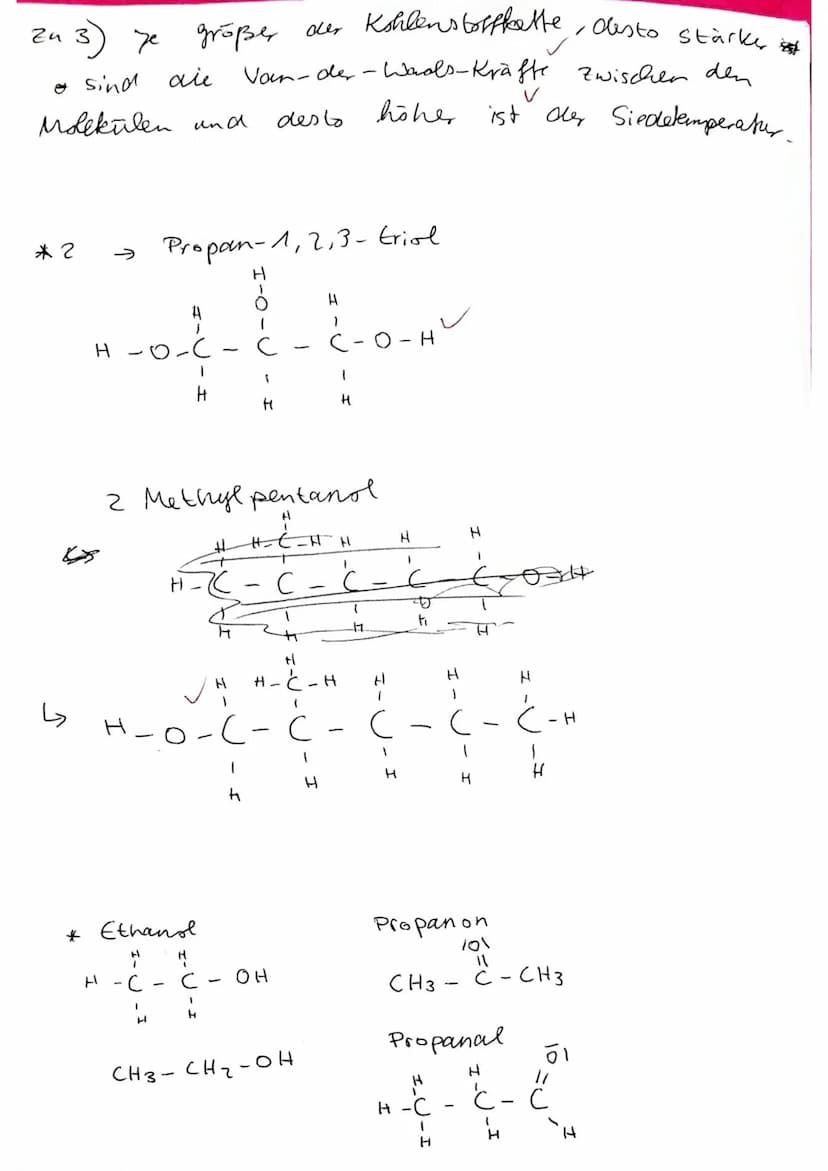 zu 3) je größer der Kohlenstoffkette, desto stärker
sind die Van-der-Waals-Kräfte zwischen den
Molekülen und desto höher ist der Siedetemperatur.
*2 → Propan-1,2,3-triol
H
H O H
H - O - C - C - C - O - H
H H H
2 Methylpentanol
H
H H-C-H H H H
H - C - C - C - C - C - O - H
H H H H H
H
H H-C-H H H H
↳ H - O - C - C - C - C - C - H
H H H H H
* Ethanol
H H
H - C - C - OH
H H
CH3 - CH2 - OH
Propanon
|O|
||
CH3 - C - CH3
Propanal
H H O|
H - C - C - C
H H H